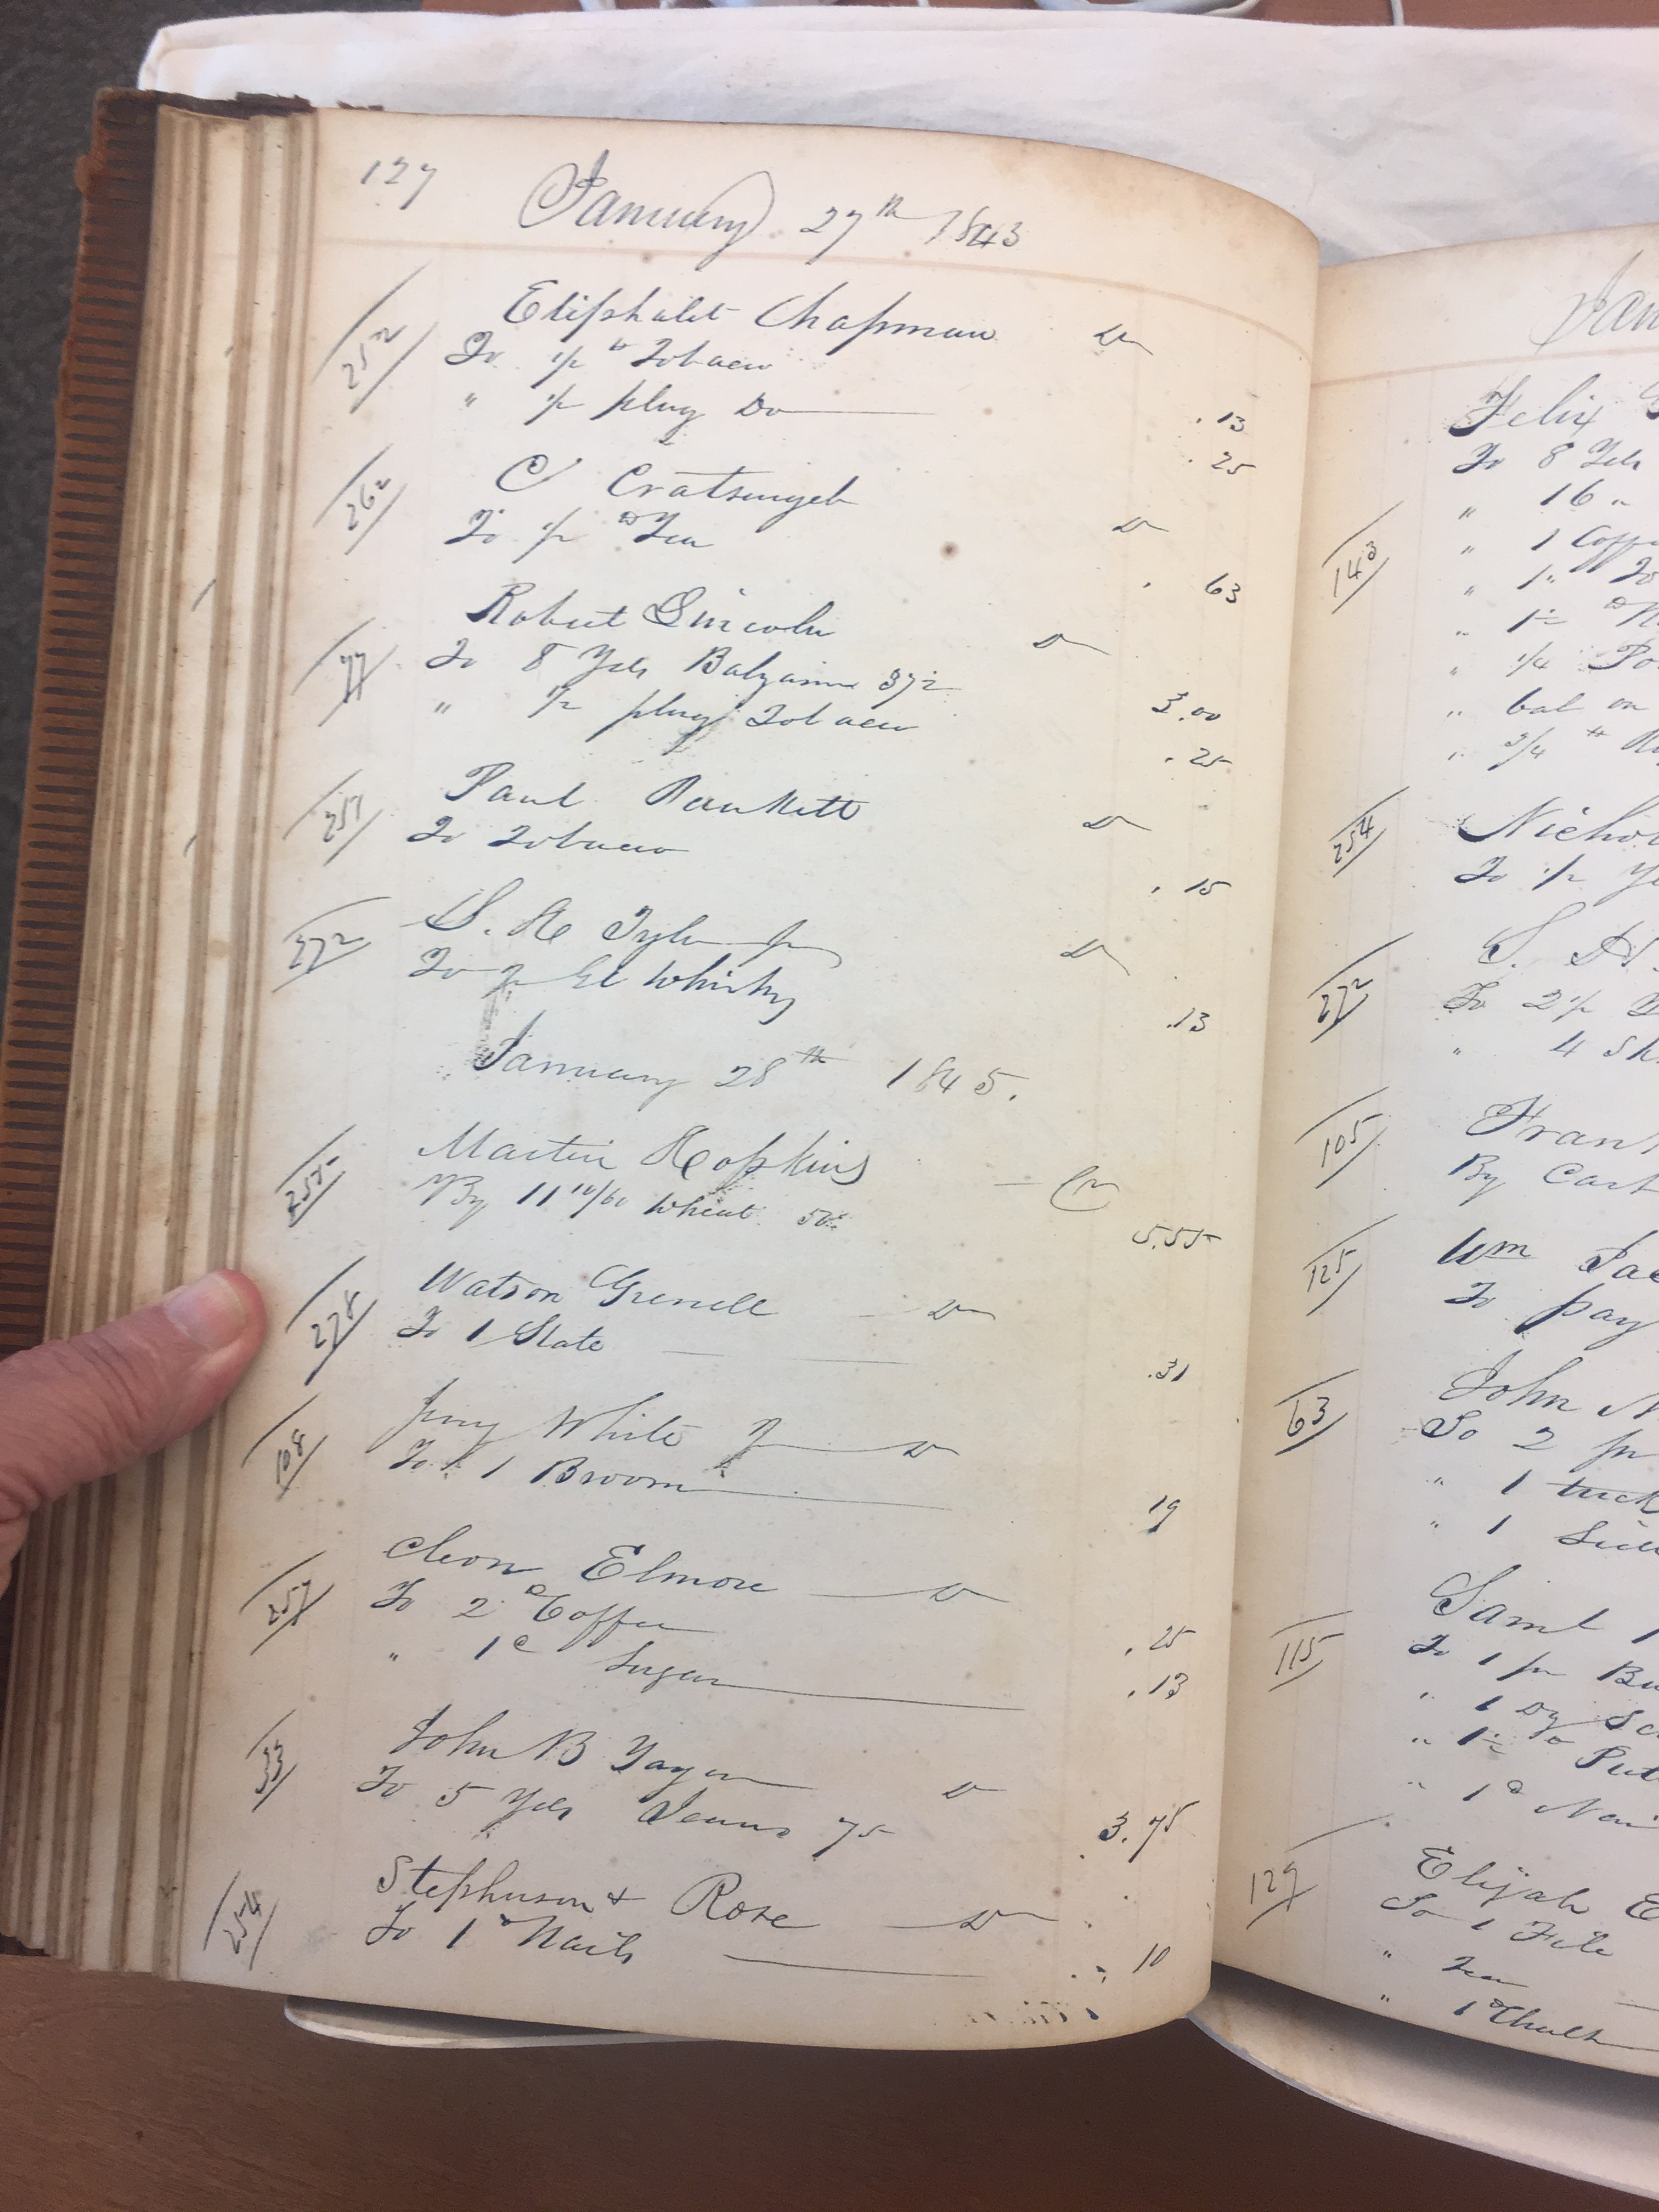 127
January 27th 1843
252
Eliphalet Chapman Dr
To 1/2 # Tobacco .13
" 1/2 plug Do .25
262
C Cratsinych Dr
To 1/2 # Tea .63
77
Robert Lincoln Dr
To 8 Yds Balzarine 37½ 3.00
" 1/2 plug Tobacco .25
251
Paul Dr
To Tobacco .15
272
S. H Tyler Jr Dr
To Gl Whisky .13
January 28th 1845.
255
Martin Hopkins Cr
By 11 10/60 Wheat 50 5.55
278
Watson Grenell Dr
To 1 Slate .31
108
Jerry White Jr Dr
To 1 Broom 19
257
Cleon Elmore Dr
To 2 # Coffee .25
" 1 # Sugar .13
33
John B Dr
To 5 Yds Jeans 75 3.75
254
Stephenson & Rose Dr
To 1 # Nails 10
Felix
To 8 Yds
" 16 "
143
" 1
" 1 "
" 1½
" 1/4
" bal on
" 3/4 #
254
To 1/2
272
S. H.
To 2 1/2
" 4
105
By
125
Wm
To pay
63
John
To 2 pr
" 1
" 1
115
Saml
To 1 pr
" 1 Dz
" 1½
" 1 #
129
Elijah E
To 1 File
" Tea
" 1 # Chalk